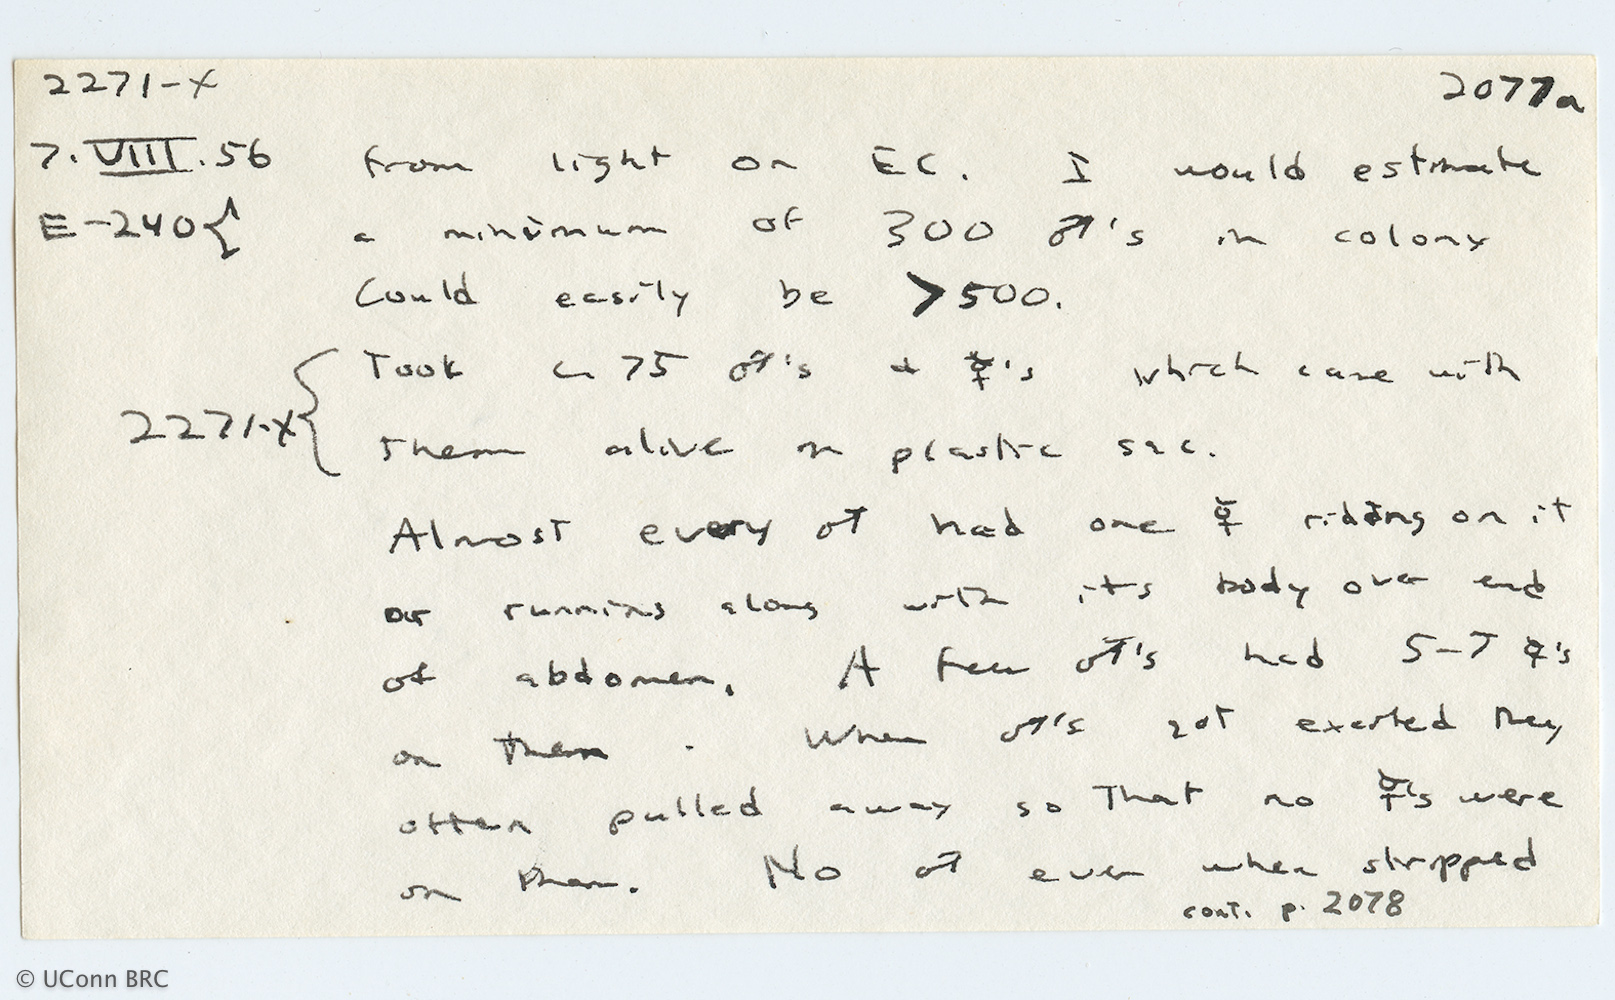 2271-X 2077a
7.VIII.56 from light on EC. I would estimate
E-240{ a minimum of 300 ♂'s in colony
Could easily be >500.
Took ca 75 ♂'s + ☿'s which came with
2271-X{ them alive in plastic sac.
Almost every ♂ had one ☿ riding on it
or running along with it's body over end
of abdomen. A few ♂'s had 5-7 ☿'s
on them. When ♂'s got excited they
often pulled away so that no ☿'s were
on them. No ♂ even when stripped
cont. p. 2078
© UConn BRC